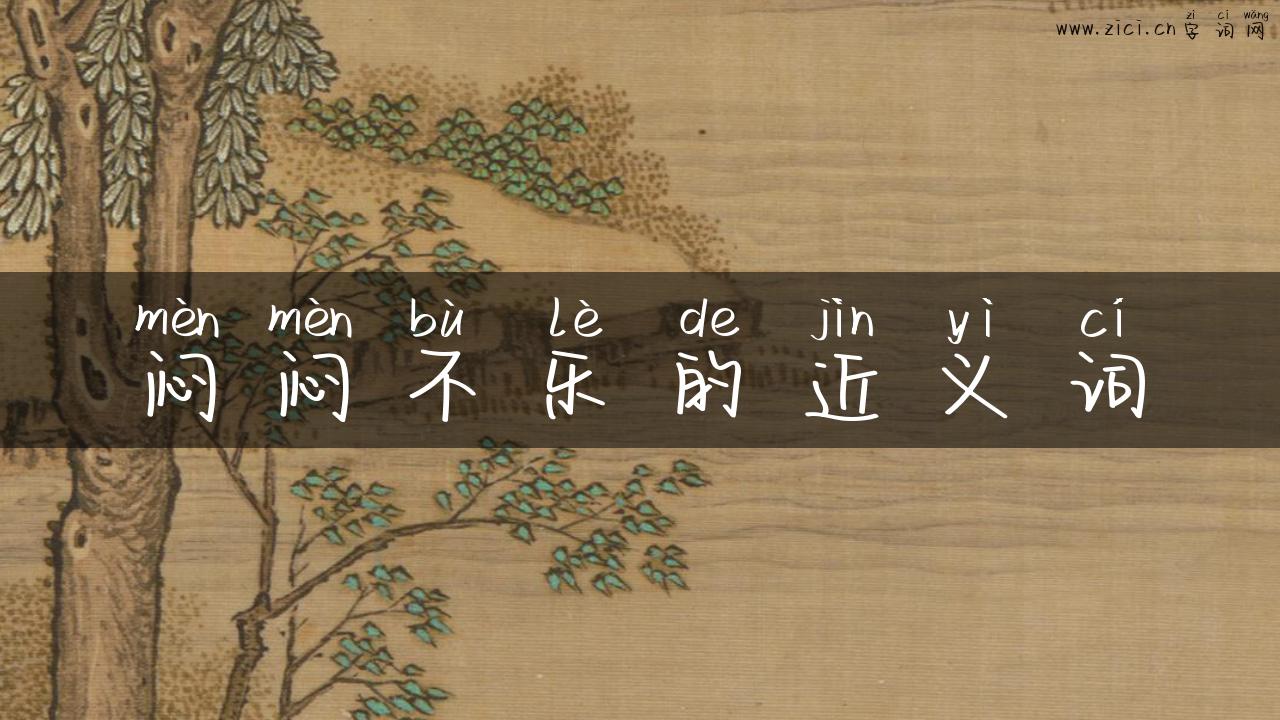 zì cí wǎng
www.zici.cn 字词网
mèn mèn bù lè de jìn yì cí
闷闷不乐的近义词